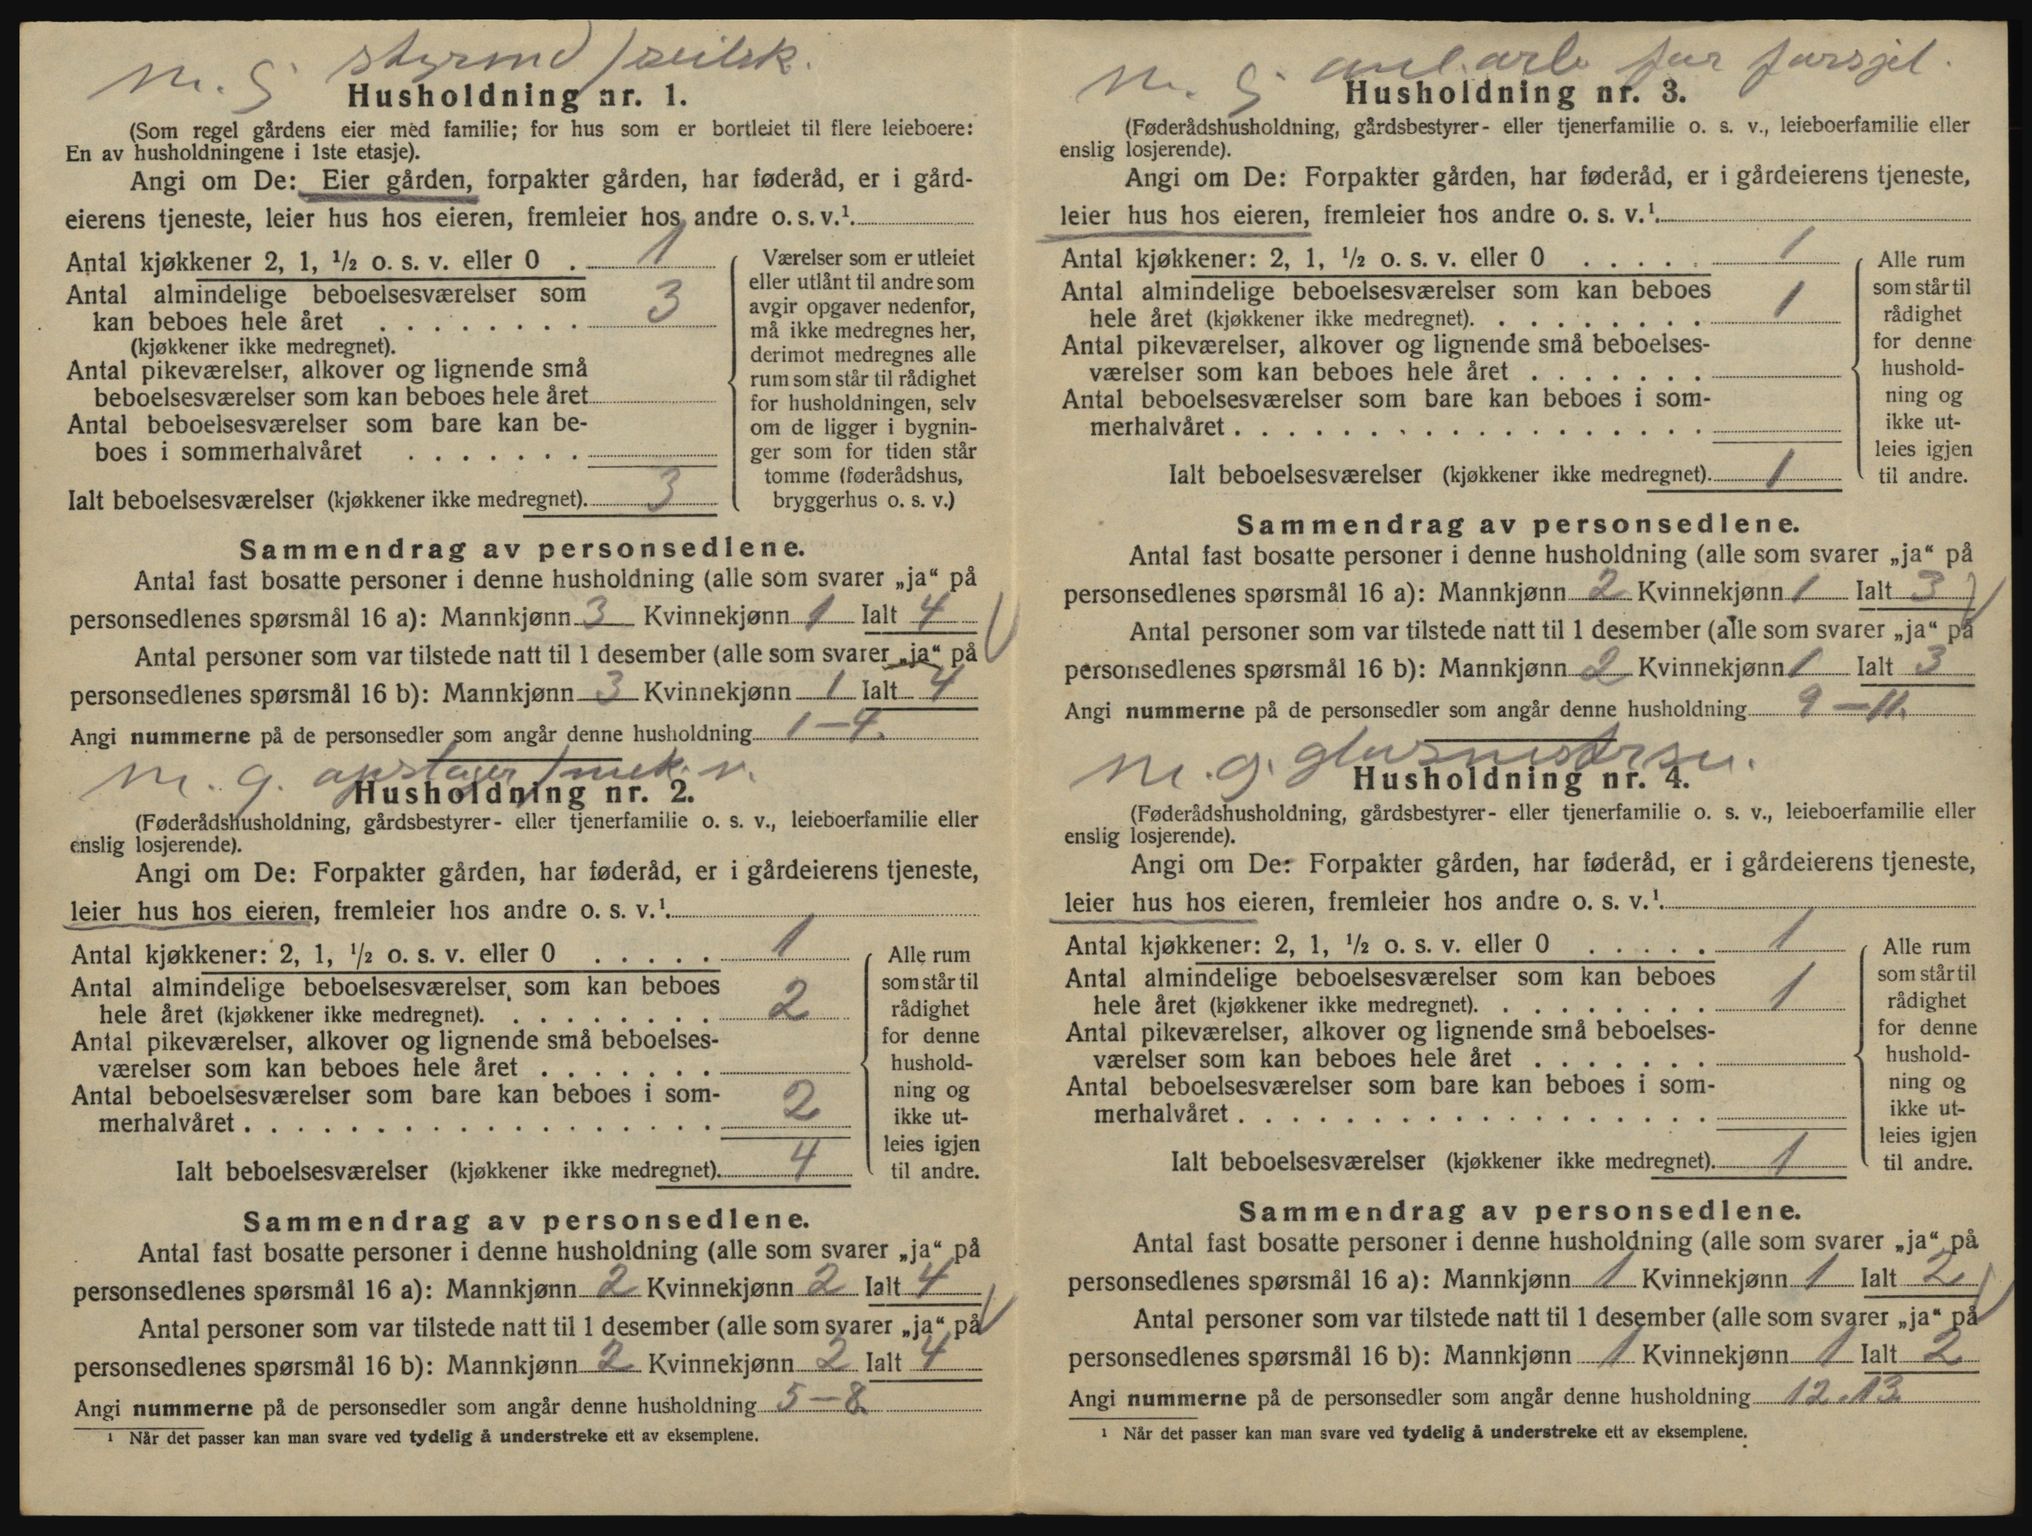 m. g. styrmd / seilsk.
Husholdning nr. 1.
(Som regel gårdens eier med familie; for hus som er bortleiet til flere leieboere:
En av husholdningene i 1ste etasje).
Angi om De: Eier gården, forpakter gården, har føderåd, er i gård-
eierens tjeneste, leier hus hos eieren, fremleier hos andre o. s. v.¹.
Antal kjøkkener 2, 1, ½ o. s. v. eller 0 . 1
Antal almindelige beboelsesværelser som
kan beboes hele året . . . . . . . . 3
(kjøkkener ikke medregnet).
Antal pikeværelser, alkover og lignende små
beboelsesværelser som kan beboes hele året
Antal beboelsesværelser som bare kan be-
boes i sommerhalvåret . . . . . . .
Ialt beboelsesværelser (kjøkkener ikke medregnet). 3
Værelser som er utleiet
eller utlånt til andre som
avgir opgaver nedenfor,
må ikke medregnes her,
derimot medregnes alle
rum som står til rådighet
for husholdningen, selv
om de ligger i bygnin-
ger som for tiden står
tomme (føderådshus,
bryggerhus o. s. v.)
Sammendrag av personsedlene.
Antal fast bosatte personer i denne husholdning (alle som svarer „ja“ på
personsedlenes spørsmål 16 a): Mannkjønn 3 Kvinnekjønn 1 Ialt 4
Antal personer som var tilstede natt til 1 desember (alle som svarer „ja“ på
personsedlenes spørsmål 16 b): Mannkjønn 3 Kvinnekjønn 1 Ialt 4
Angi nummerne på de personsedler som angår denne husholdning 1–4.
m. g. opstager / mek. v.
Husholdning nr. 2.
(Føderådshusholdning, gårdsbestyrer- eller tjenerfamilie o. s. v., leieboerfamilie eller
enslig losjerende).
Angi om De: Forpakter gården, har føderåd, er i gårdeierens tjeneste,
leier hus hos eieren, fremleier hos andre o. s. v.¹.
Antal kjøkkener: 2, 1, ½ o. s. v. eller 0 . . . . . 1
Antal almindelige beboelsesværelser som kan beboes
hele året (kjøkkener ikke medregnet). . . . . . . . . 2
Antal pikeværelser, alkover og lignende små beboelses-
værelser som kan beboes hele året . . . . . . .
Antal beboelsesværelser som bare kan beboes i som-
merhalvåret . . . . . . . . . . . . . . . . . . 2
Ialt beboelsesværelser (kjøkkener ikke medregnet). 4
Alle rum
som står til
rådighet
for denne
hushold-
ning og
ikke ut-
leies igjen
til andre.
Sammendrag av personsedlene.
Antal fast bosatte personer i denne husholdning (alle som svarer „ja“ på
personsedlenes spørsmål 16 a): Mannkjønn 2 Kvinnekjønn 2 Ialt 4
Antal personer som var tilstede natt til 1 desember (alle som svarer „ja“ på
personsedlenes spørsmål 16 b): Mannkjønn 2 Kvinnekjønn 2 Ialt 4
Angi nummerne på de personsedler som angår denne husholdning 5–8.
¹ Når det passer kan man svare ved tydelig å understreke ett av eksemplene.
m. g. arb. for forsjel.
Husholdning nr. 3.
(Føderådshusholdning, gårdsbestyrer- eller tjenerfamilie o. s. v., leieboerfamilie eller
enslig losjerende).
Angi om De: Forpakter gården, har føderåd, er i gårdeierens tjeneste,
leier hus hos eieren, fremleier hos andre o. s. v.¹.
Antal kjøkkener: 2, 1, ½ o. s. v. eller 0 . . . . . 1
Antal almindelige beboelsesværelser som kan beboes
hele året (kjøkkener ikke medregnet). . . . . . . . . 1
Antal pikeværelser, alkover og lignende små beboelses-
værelser som kan beboes hele året . . . . . . .
Antal beboelsesværelser som bare kan beboes i som-
merhalvåret . . . . . . . . . . . . . . . . . .
Ialt beboelsesværelser (kjøkkener ikke medregnet). 1
Alle rum
som står til
rådighet
for denne
hushold-
ning og
ikke ut-
leies igjen
til andre.
Sammendrag av personsedlene.
Antal fast bosatte personer i denne husholdning (alle som svarer „ja“ på
personsedlenes spørsmål 16 a): Mannkjønn 2 Kvinnekjønn 1 Ialt 3
Antal personer som var tilstede natt til 1 desember (alle som svarer „ja“ på
personsedlenes spørsmål 16 b): Mannkjønn 2 Kvinnekjønn 1 Ialt 3
Angi nummerne på de personsedler som angår denne husholdning 9–11.
m. g. glasmestersv.
Husholdning nr. 4.
(Føderådshusholdning, gårdsbestyrer- eller tjenerfamilie o. s. v., leieboerfamilie eller
enslig losjerende).
Angi om De: Forpakter gården, har føderåd, er i gårdeierens tjeneste,
leier hus hos eieren, fremleier hos andre o. s. v.¹.
Antal kjøkkener: 2, 1, ½ o. s. v. eller 0 . . . . . 1
Antal almindelige beboelsesværelser som kan beboes
hele året (kjøkkener ikke medregnet). . . . . . . . . 1
Antal pikeværelser, alkover og lignende små beboelses-
værelser som kan beboes hele året . . . . . . .
Antal beboelsesværelser som bare kan beboes i som-
merhalvåret . . . . . . . . . . . . . . . . . .
Ialt beboelsesværelser (kjøkkener ikke medregnet). 1
Alle rum
som står til
rådighet
for denne
hushold-
ning og
ikke ut-
leies igjen
til andre.
Sammendrag av personsedlene.
Antal fast bosatte personer i denne husholdning (alle som svarer „ja“ på
personsedlenes spørsmål 16 a): Mannkjønn 1 Kvinnekjønn 1 Ialt 2
Antal personer som var tilstede natt til 1 desember (alle som svarer „ja“ på
personsedlenes spørsmål 16 b): Mannkjønn 1 Kvinnekjønn 1 Ialt 2
Angi nummerne på de personsedler som angår denne husholdning 12.13
¹ Når det passer kan man svare ved tydelig å understreke ett av eksemplene.